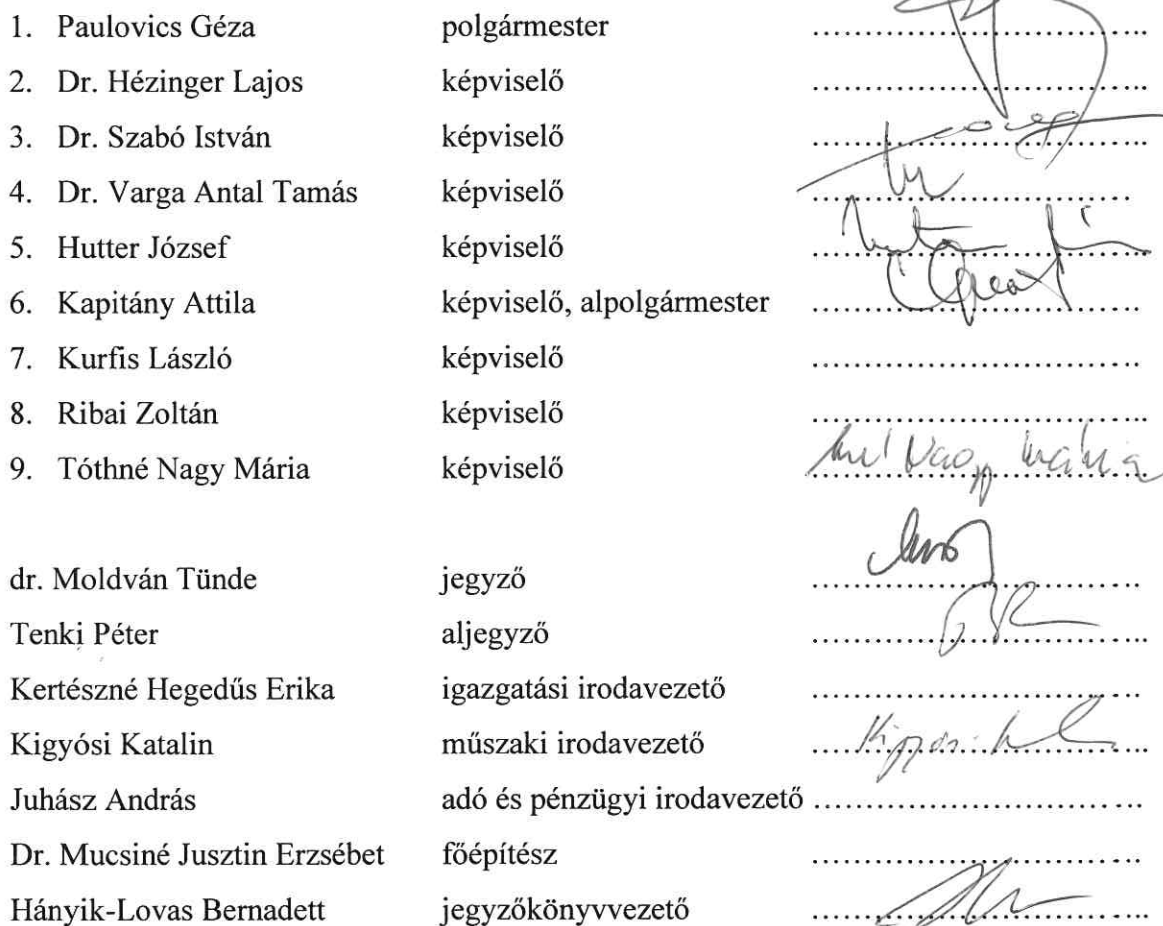 1. Paulovics Géza polgármester ..............................
2. Dr. Hézinger Lajos képviselő ..............................
3. Dr. Szabó István képviselő ..............................
4. Dr. Varga Antal Tamás képviselő ..............................
5. Hutter József képviselő ..............................
6. Kapitány Attila képviselő, alpolgármester ..............................
7. Kurfis László képviselő ..............................
8. Ribai Zoltán képviselő ..............................
9. Tóthné Nagy Mária képviselő .............................. Nagy Mária
dr. Moldván Tünde jegyző ..............................
Tenki Péter aljegyző ..............................
Kertészné Hegedűs Erika igazgatási irodavezető ..............................
Kigyósi Katalin műszaki irodavezető ..............................
Juhász András adó és pénzügyi irodavezető ..............................
Dr. Mucsiné Jusztin Erzsébet főépítész ..............................
Hányik-Lovas Bernadett jegyzőkönyvvezető ..............................